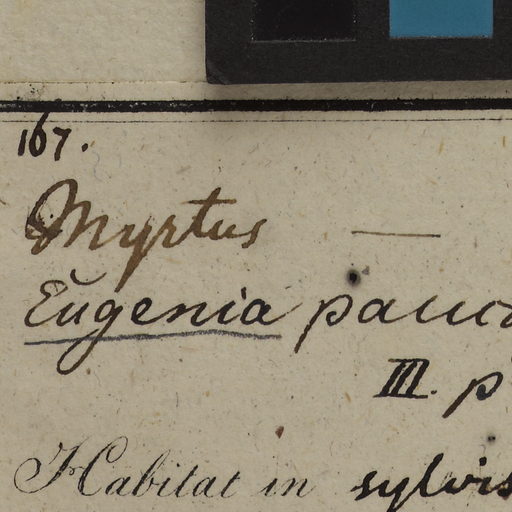 167.
Myrtus —
Eugenia pauc
III. p
Habitat in sylvis